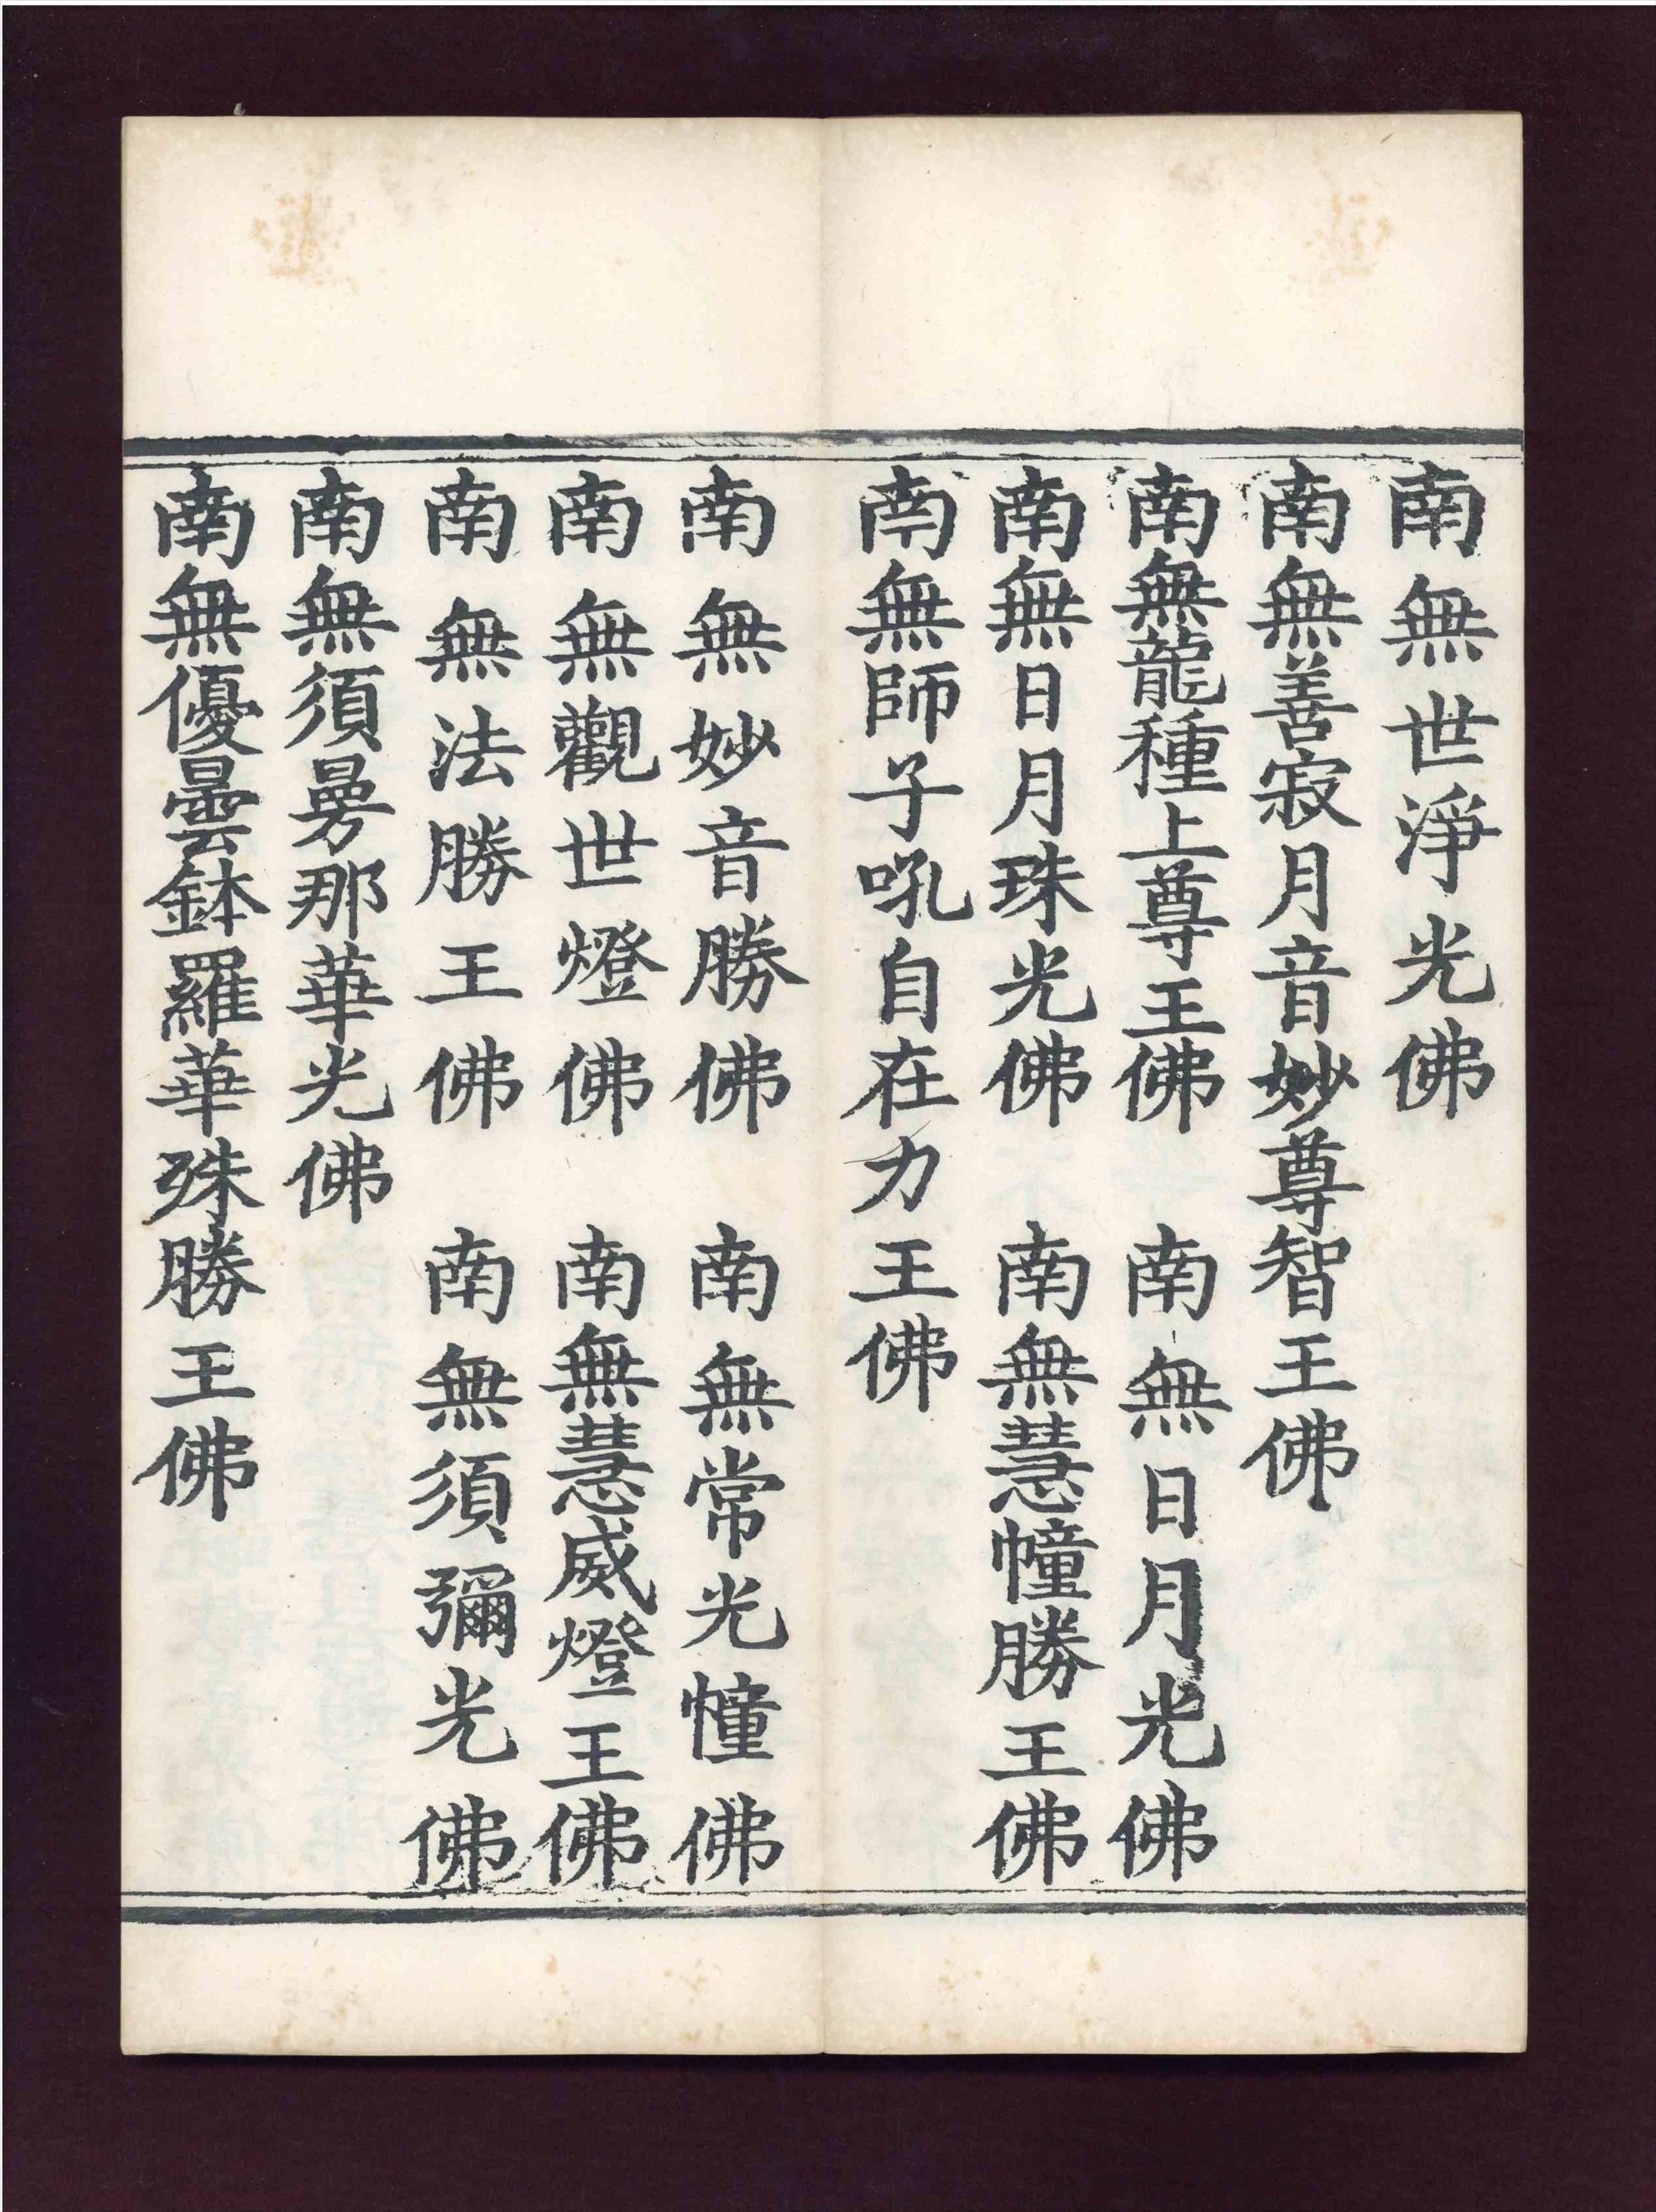 南無世淨光佛
南無善寂月音妙尊智王佛
南無龍種上尊王佛　南無日月光佛
南無日月珠光佛　南無慧幢勝王佛
南無師子吼自在力王佛
南無妙音勝佛　南無常光幢佛
南無觀世燈佛　南無慧威燈王佛
南無法勝王佛　南無須彌光佛
南無須曼那華光佛
南無優曇鉢羅華殊勝王佛